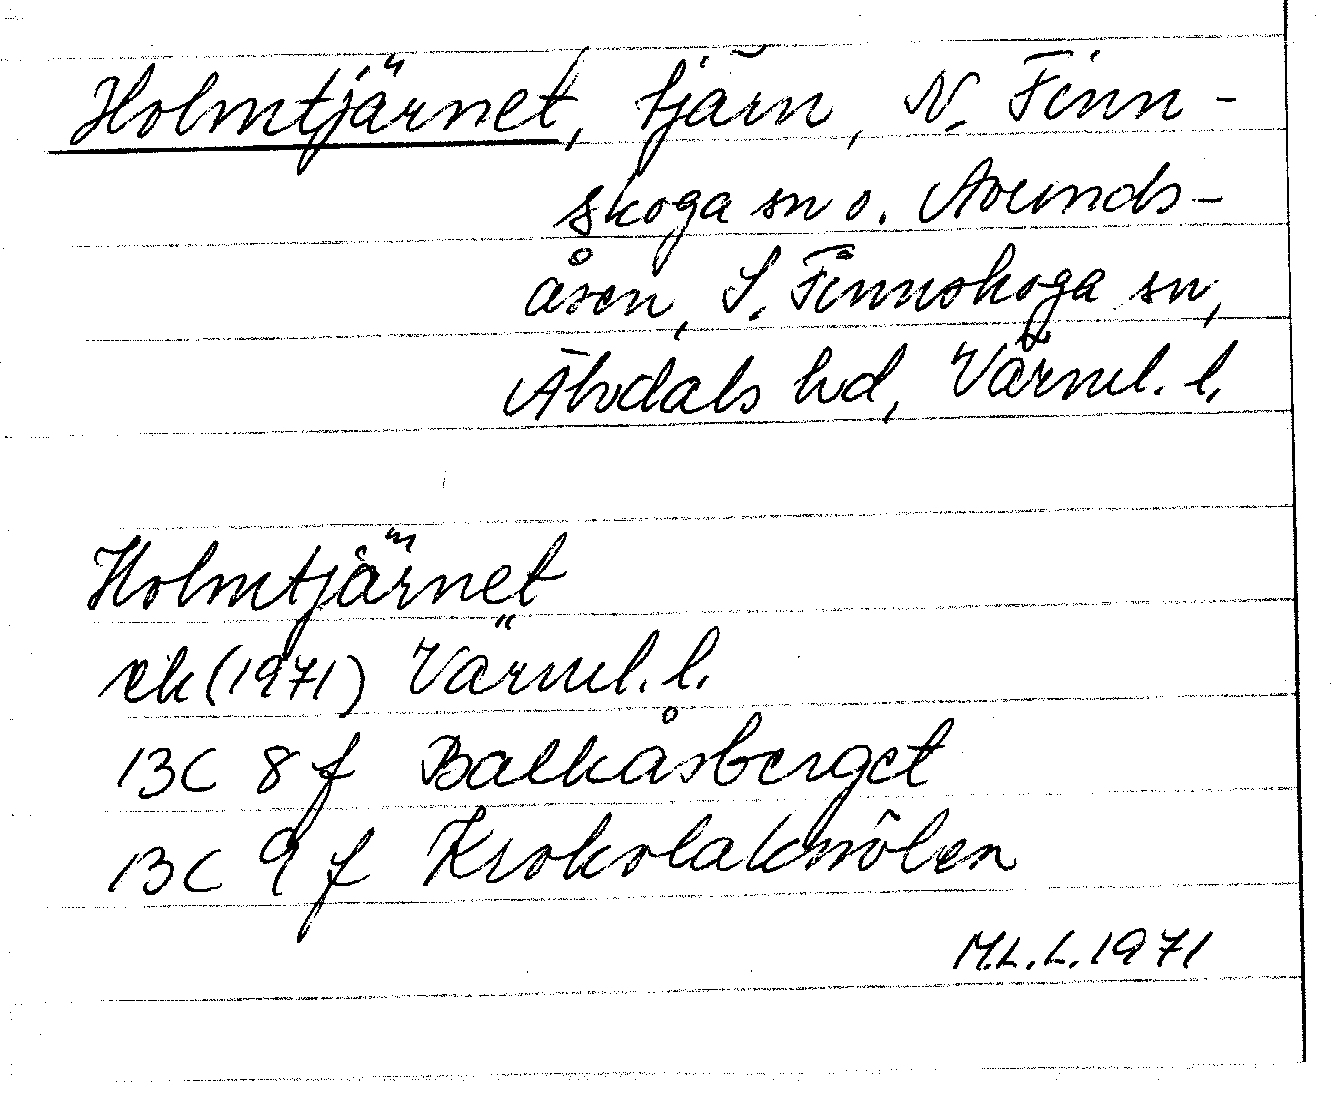 Holmtjärnet, tjärn, N. Finn-
skoga sn o. Avunds-
åsen, S. Finnskoga sn,
Älvdals hd, Värml. l.
Holmtjärnet
ek (1971) Värml. l.
13C 8f Balkåsberget
13C 9f
M.L.L. 1971